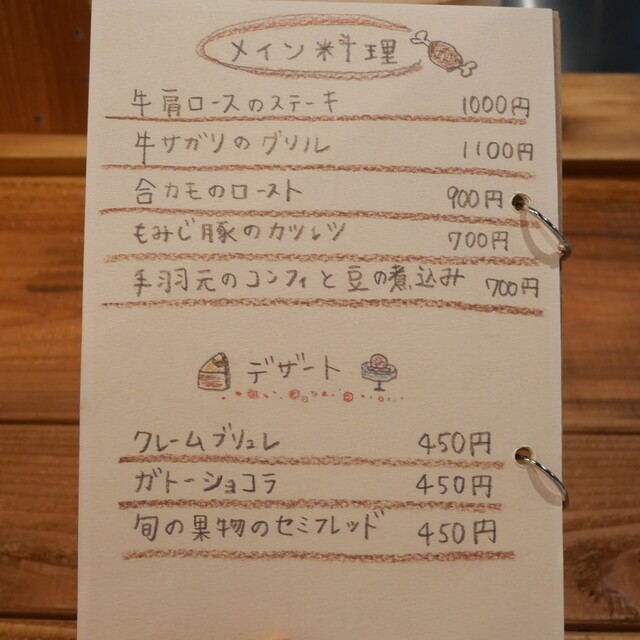 メイン料理
牛肩ロースのステーキ 1000円
牛サガリのグリル 1100円
合カモのロースト 900円
もみじ豚のカツレツ 700円
手羽元のコンフィと豆の煮込み 700円
デザート
クレームブリュレ 450円
ガトーショコラ 450円
旬の果物のセミフレッド 450円